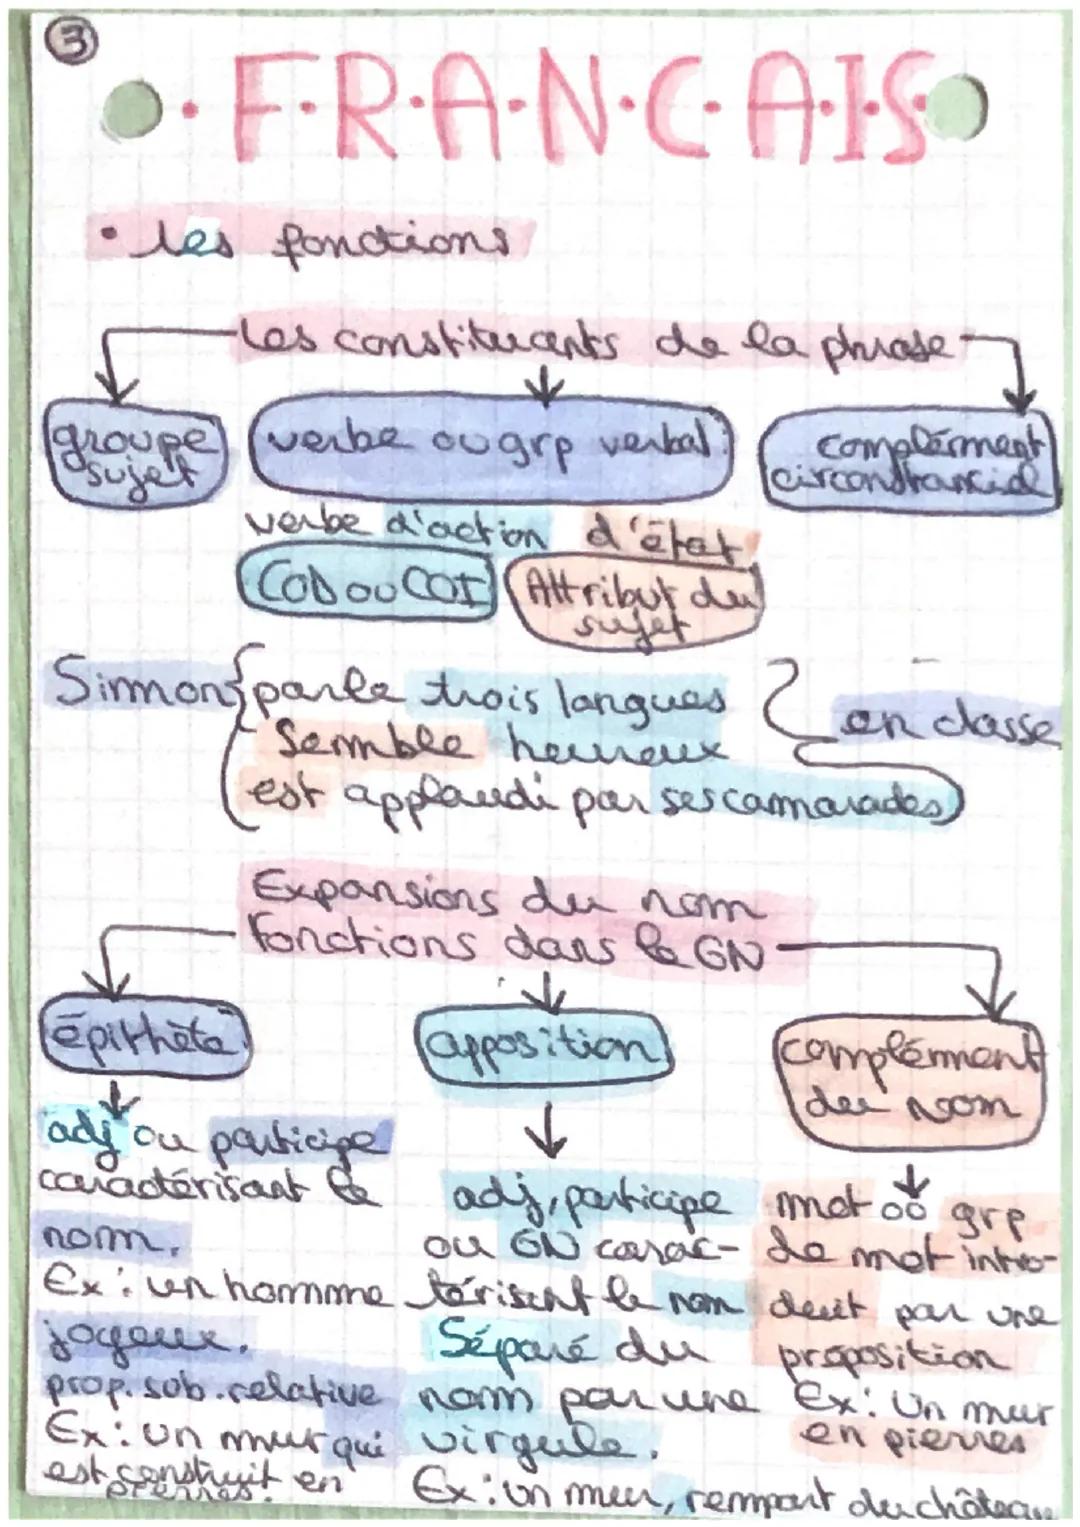 3
F.R.A.N.C.A.I.S
• les fonctions
Les constituants de la phrase
groupe sujet
verbe ou grp verbal
complément circonstanciel
verbe d'action d'état
COD ou COI
Attribut du sujet
Simon
parle trois langues
semble heureux
est applaudi par ses camarades
en classe
Expansions du nom
Fonctions dans le GN
épithète
apposition
complément
du nom
adj ou participe
caractérisant le
nom.
Ex : un homme
joyeux.
prop. sub. relative
Ex : un mur qui
est construit en
pierres.
adj, participe
ou GN carac-
térisent le nom
Séparé du
nom par une
virgule.
Ex : un mur, rempart du château
mot ou grp
de mot intro-
duit par une
proposition
Ex : Un mur
en pierres